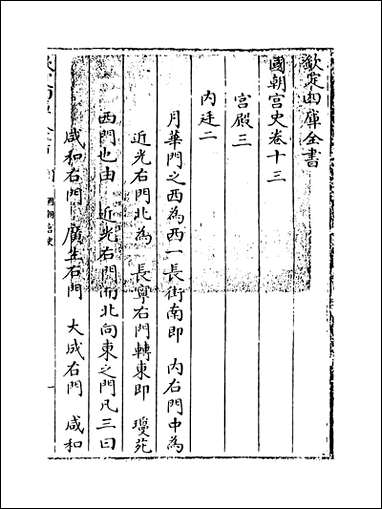 欽定四庫全書
國朝宫史卷十三
宫殿三
内廷二
月華門之西為西一長街南即 内右門中為
近光右門北為 長康右門轉東即 瓊苑
西門也由 近光右門而北向東之門凡三曰
咸和右門 廣生右門 大成右門 咸和
國朝宫史
一